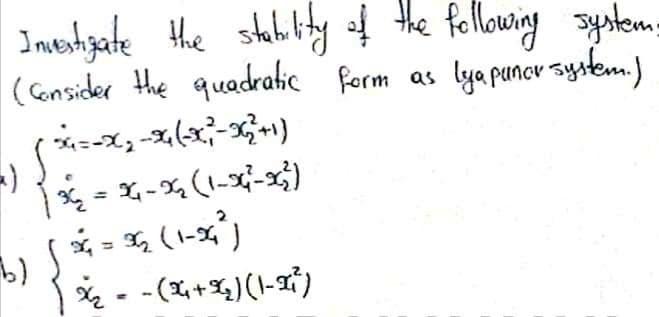 Investigate the stability of the following system:
(Consider the quadratic form as lyapunov system.)
a) { ẋ₁ = -x₂ - x₁(-x₁² - x₂² + 1)
ẋ₂ = x₁ - x₂(1 - x₁² - x₂²)
b) { ẋ₁ = x₂(1 - x₁²)
ẋ₂ = -(x₁ + x₂)(1 - x₁²)